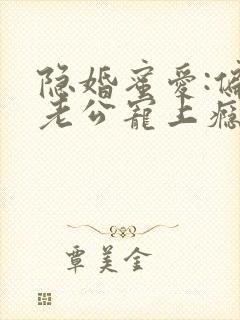 隐婚蜜爱:偏
老公宠上瘾
覃美金